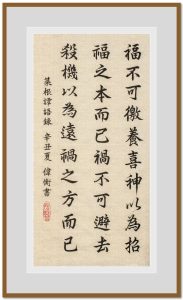 福不可徼養喜神以為招
福之本而已禍不可避去
殺機以為遠禍之方而已
菜根譚語錄 辛丑夏 偉衡書